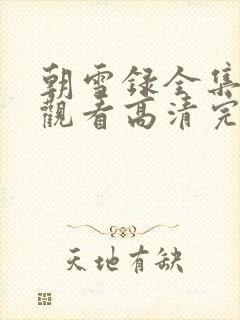 朝雪録全集
觀看高清完
天地有缺